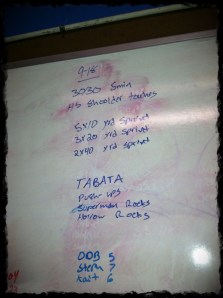 9-15
3030 5min
HS Shoulder touches
5x10 yrd Sprint
3x20 yrd Sprint
2x40 yrd Sprint
TABATA
Push ups
Superman Rocks
Hollow Rocks
DOB 5
Steph 7
Kait 6